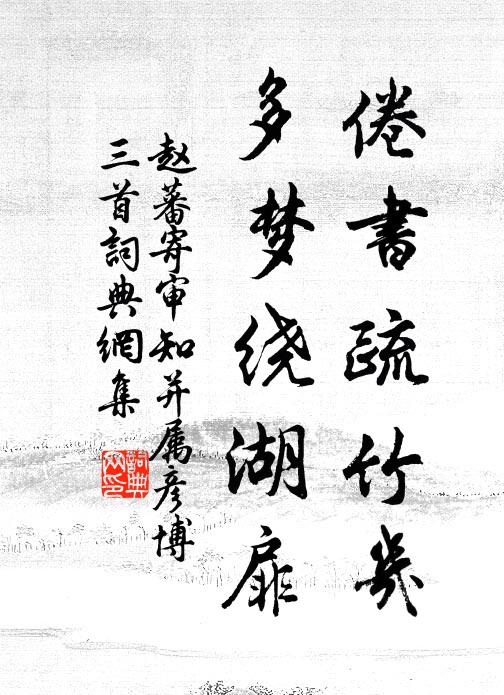 倦書疏竹幾
多梦绕湖扉
赵蕃寄审知并属彦博
三首詞典網集